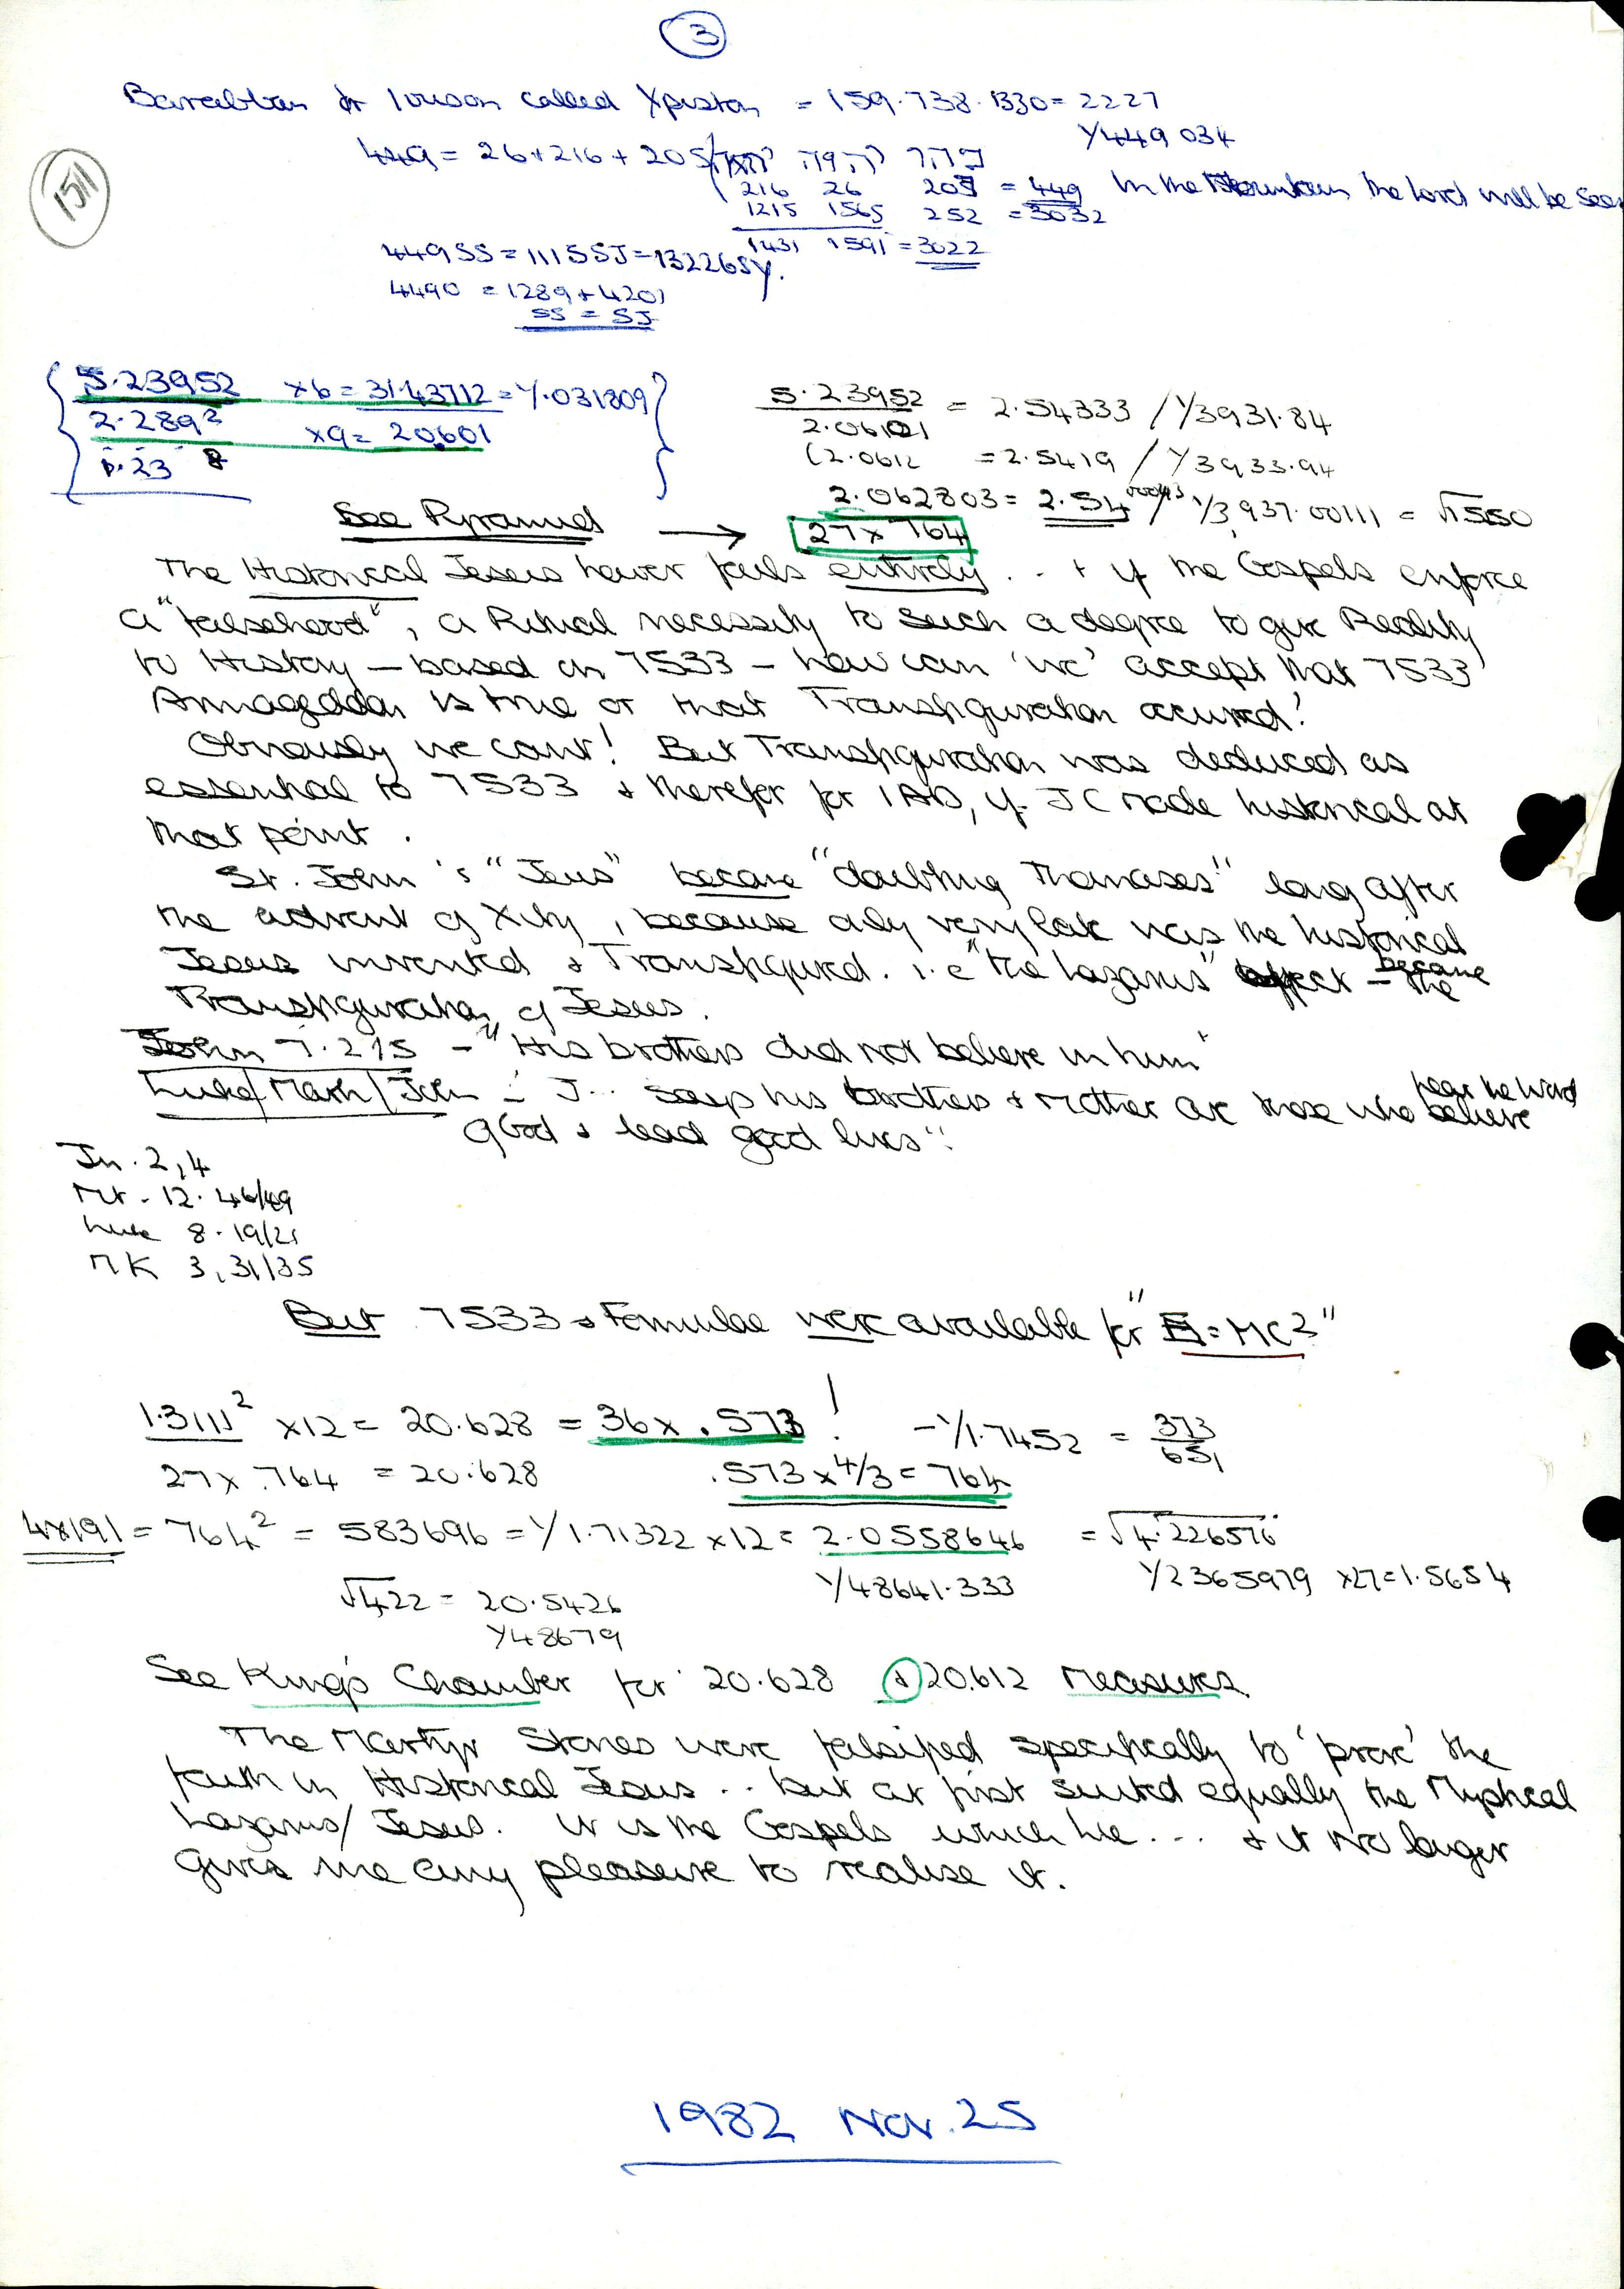 3
Barabban or Iouson called Xpiston = 159.738.1330 = 2227
1/449 034
1511
449 = 26 + 216 + 205
216 26 205 = 449 In the Mountain the Lord will be Seen
1215 1565 252 = 3032
1431 1591 = 3022
449SS = 1115SJ = 132265Y.
4490 = 1289 + 4201
SS = SJ
5.23952 x6 = 31.43712 = 1/.031809
2.289² x9 = 20.601
5.23952 = 2.54333 / 1/3931.84
2.06101
(2.0612 = 2.5419 / 1/3933.94
2.062803 = 2.54 00043 / 1/3937.00111 = √1550
See Pyramid → 27 x 764
The Historical Jesus hower fails entirely... + if the Gospels enforce
a "falsehood", a Ritual necessity to such a degree to give Reality
to History – based on 7533 – how can 'we' accept that 7533
Armageddon is true or that Transfiguration occurred?
Obviously we cant! But Transfiguration was deduced as
essential to 7533 & therefor for 1AD, if JC made historical at
that point.
St. John 's "Jews" became "doubting Thomases" long after
the advent of Xity, because only very late was the historical
Jesus invented & Transfigured. i.e "the Lazarus" became the
Transfiguration of Jesus.
John 7.215 – "His brothers did not believe in him"
Luke/Mark/John – J... says his brothers & mother are those who hear the word
of God & lead good lives".
Jn. 2,4
Mt - 12. 46/49
Luke 8.19/21
MK 3,31/35
But 7533 & Formulae were available for "E=MC²"
1.3111² x12 = 20.628 = 36 x .573 ! – 1/1.7452 = 373/651
27 x .764 = 20.628 .573 x 4/3 = 764
4x191 = 764² = 583696 = 1/1.71322 x12 = 2.0558646 = √4.226576
1/48641.333 1/2365979 x27=1.5654
√422 = 20.5426
1/48679
See King's Chamber for 20.628 & 20.612 Measures.
The Martyr Stones were falsified specifically to 'prove' the
faith in Historical Jesus .. but at first suited equally the Mythical
Lazarus/Jesus. It is the Gospels which lie... & it no longer
gives me any pleasure to realise it.
1982 Nov. 25